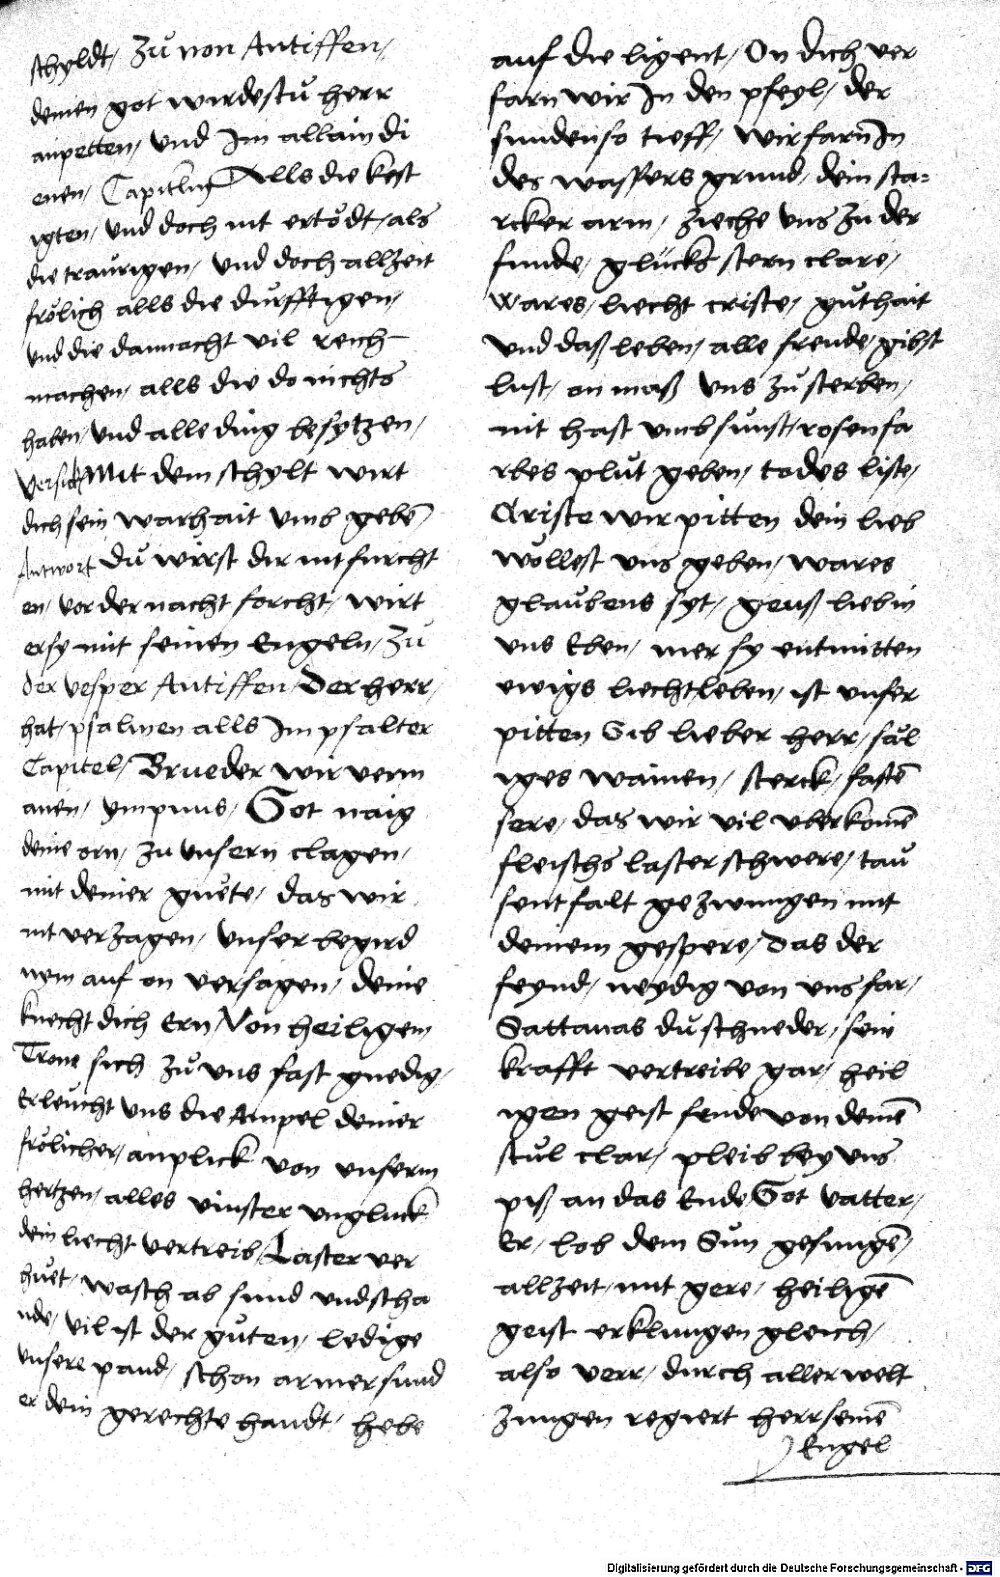 schyldt, Zů non Antiffen,
deinen got wirdestu herr
anpetten, vnd Im allain di
enen, Capitlum Alls die kest
igten, vnd doch nit ertödt, als
die traurigen, vnd doch allzeit
frölich alls die dürfftigen,
vnd die dannacht vil reich
machen, alls die do nichts
haben, vnd alle ding besytzen,
Versick Mit dem schylt wirt
dich sein warhait vmb gebē
Antwort Dů wirst dir nit furcht
en, vor der nacht forcht, wirt
er sy mit seinen Engeln, Zů
der vesper Antiffen, Der herr,
hat, psalmen alls Im psalter
Capitel, Brueder wir verm
anen, ympnus, Got naig
deine orn, zu vnsern clagen,
mit deiner guete, das wir
nit verzagen, vnser begird
nym auf on versagen, deine
knecht dich Ern, Von heiligem
Trone sich zů vns fast gnedig,
Erleucht vns die Ampel deiner
frölicher, anplick von vnserm
hertzen, alles vinster vngluck
dein liecht vertreib, Laster ver
huet, wasch ab sund vnd scha
nde, vil ist der guten, ledige
vnsere pand, schon armer sund
er dein gerechte handt, hebe
auf die ligent, On dich ver
farn wir In den pfeyl, der
sunden so tieff, wir farn In
des wassers grund, dein sta-
rcker arm, zieche vns zu der
funde, glucks stern clare,
wares, liecht criste, guthait
vnd daß leben, alle freude, gibst
lust, on maß vns zů sterben,
nit hast vmb sunst, rosenfa
rbes plůt geben, todes liste,
Criste wir pitten dein lieb
wöllest vns geben, wares
glaubens syt, geuß lieb in
vns Eben, mer sy entmitten
ewigs liecht leben, ist vnser
pitten Gib lieber herr, säl
iges wainen, sterck, fastē
sere, das wir vil vberkomē
fleischs laster schwere, tau
sent falt gezwungen mit
deinem gespere, Das der
feynd, neydig von vns far,
Sattanas du schneder, sein
krafft vertreibe gar, heil
igen geist sende von deinē
stůl clar, pleib bey vns
piß an das Ende, Got Vatter,
Er, lob dem Sůn gesungē,
allzeit, mit gere, heiligē
geist erklungen gleich,
also verr, durch aller welt
zungen regiert herr seinē
Engel
Digitalisierung gefördert durch die Deutsche Forschungsgemeinschaft - DFG